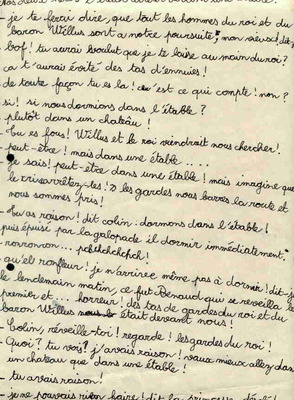 - je te ferais dire, que tout les hommes du roi et du
baron Willus sont a notre poursuite, mon vieux! dit-j
- bof! tu aurai voulut que je te laise au main du roi?
ca t'aurai évité des tas d'ennuies!
- de toute façon tu es la! c'est ce qui compte! non?
- si! si nous dormions dans l'étable?
- plutôt dans un chateau!
- tu es fous! Willus et le roi viendrait nous chercher!
- peut-être! mais dans une étable ....
- Je sais! peut-être dans une étable! mais imagine que
les gardes nous barre la route et
nous sommes pris!
- tu as raison! dit colin. dormons dans l'étable!
puis épuisé par la galopade il dormir immédiatement.
- ronronron... pchchchchch!
- qu'el ronfleur! je n'arrivee même pas à dormir! dit-je
le lendemain matin, ce fut Renaud qui se reveilla le
premier et... horreur! des tas de gardes du roi et du
baron Willus était devant nous!
- Colin, réveille-toi! regarde! les gardes du roi!
- Quoi? tu vois? j'avais raison! vaux mieux allez dans
un chateau que dans une étable!
- tu avais raison!
- je ne pouvais rien faire! dit la princesse